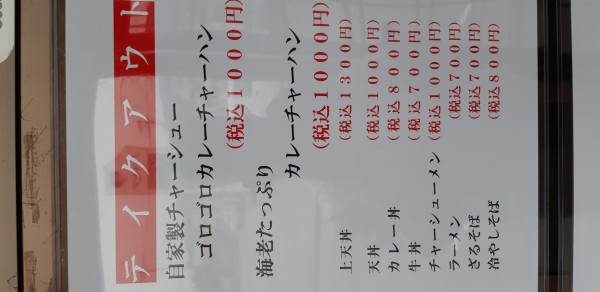 テイクアウト
自家製チャーシュー
ゴロゴロカレーチャーハン
(税込1000円)
海老たっぷり
カレーチャーハン
(税込1000円)
上天丼 (税込1300円)
天丼 (税込1000円)
カレー丼 (税込800円)
牛丼 (税込700円)
チャーシューメン (税込1000円)
ラーメン (税込700円)
ざるそば (税込700円)
冷やしそば (税込800円)